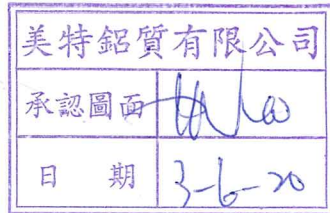 美特鋁質有限公司
承認圖面
日期 3-6-20